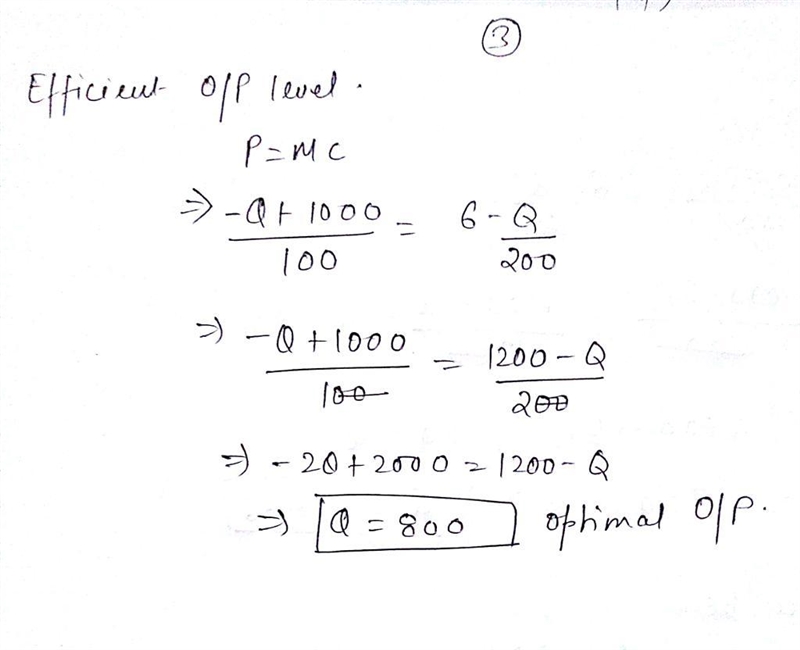 ③
Efficient O/P level.
P = MC
⇒ -Q + 1000 / 100 = 6 - Q / 200
⇒ -Q + 1000 / 100 = 1200 - Q / 200
⇒ -2Q + 2000 = 1200 - Q
⇒ Q = 800 optimal O/P.